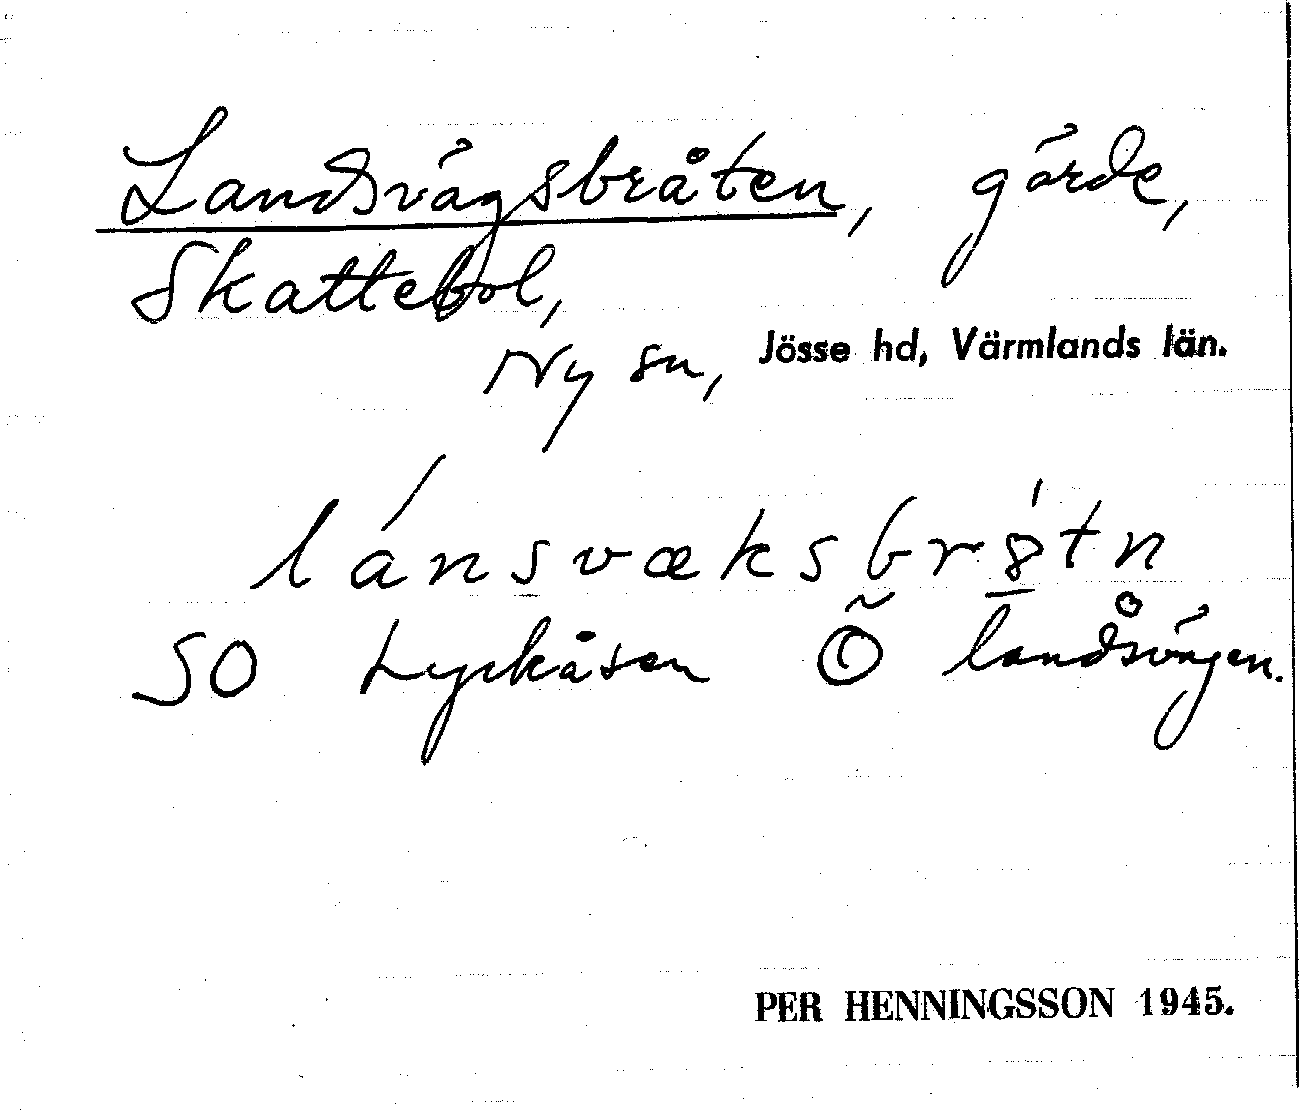 Landsvägsbråten, gärde,
Skattebol,
Ny sn, Jösse hd, Värmlands län.
lánsvæksbr8̠̍tn
SO Lyckåsen Ö landsvägen.
PER HENNINGSSON 1945.